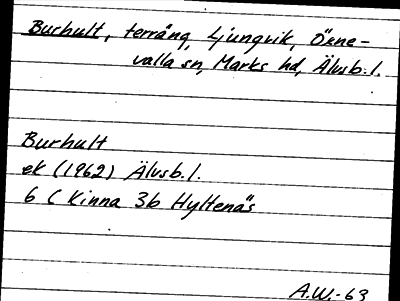 Burhult, terräng, Ljungvik, Örne-
valla sn, Marks hd, Älvsb. l.
Burhult
ek (1962) Älvsb. l.
6 C Kinna 3b Hyltenäs
A.W.-63